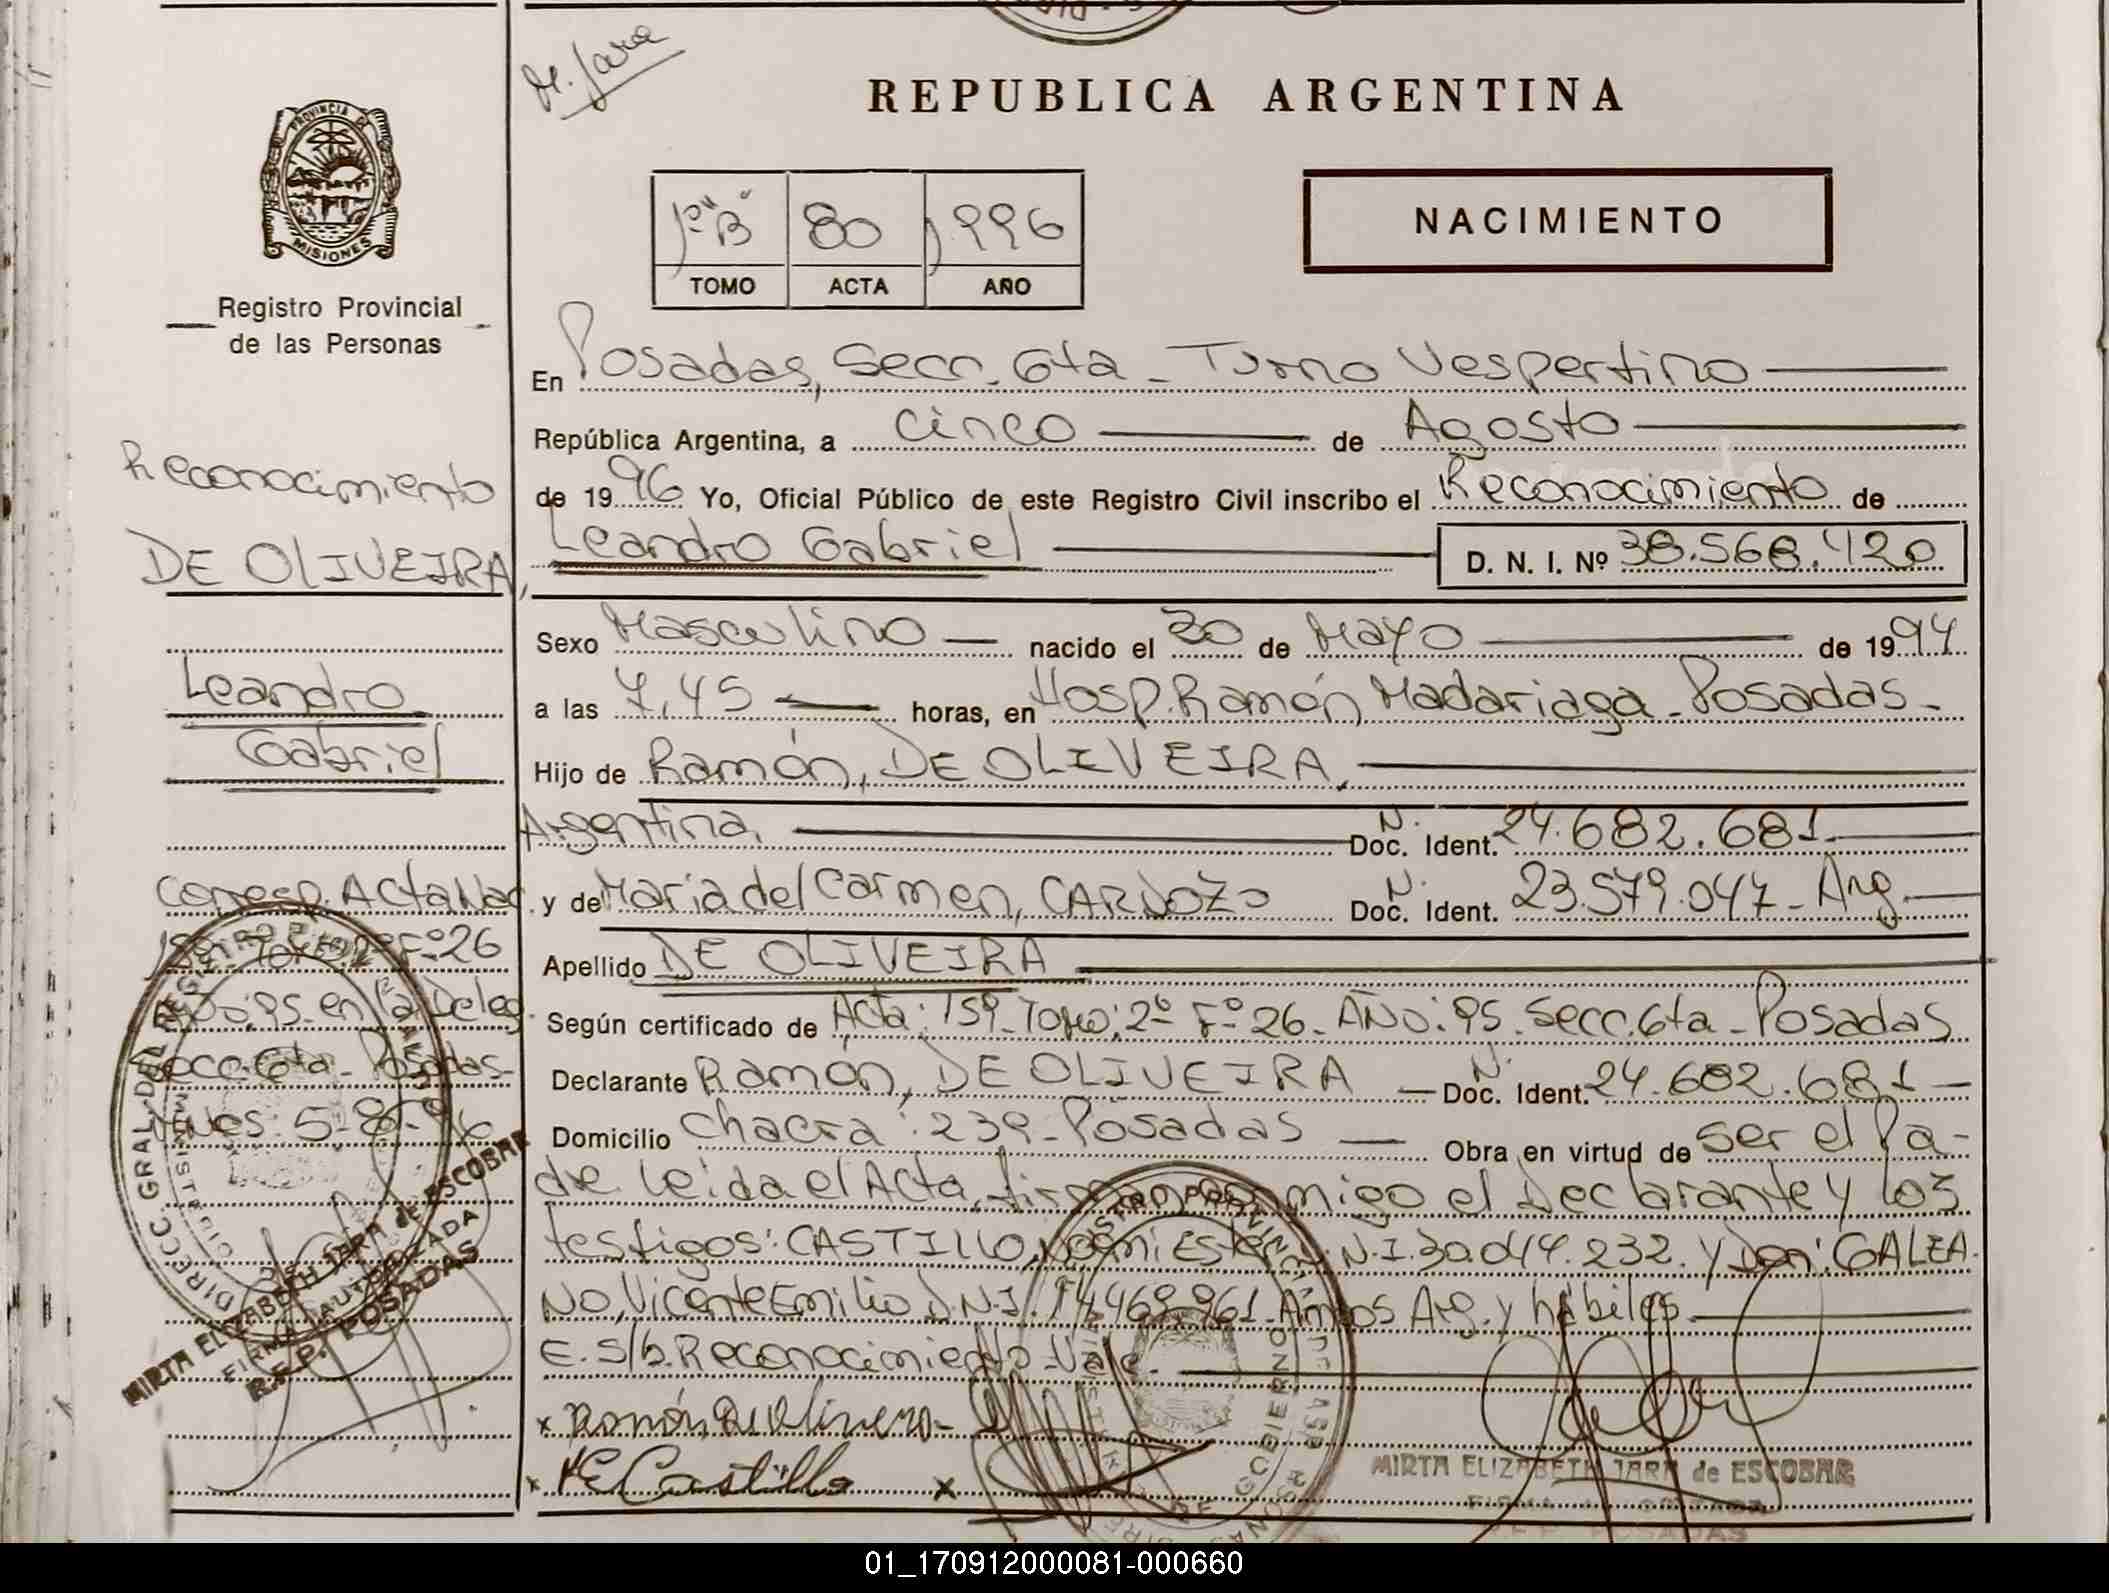 M. Jara
REPUBLICA ARGENTINA
PROVINCIA DE
MISIONES
Registro Provincial
de las Personas
1º "B" 80 1996
TOMO ACTA AÑO
NACIMIENTO
En Posadas, Secc. 6ta - Turno Vespertino
República Argentina, a cinco de Agosto
de 1996 Yo, Oficial Público de este Registro Civil inscribo el Reconocimiento de
Leandro Gabriel D. N. I. Nº 38.568.420
Sexo Masculino nacido el 30 de Mayo de 1994
a las 7,45 horas, en Hosp. Ramón Madariaga - Posadas -
Hijo de Ramón, DE OLIVEIRA,
Argentina, Doc. N. Ident. 24.682.681
y de María del Carmen, CARDOZO Doc. N. Ident. 23.579.047 - Arg.
Apellido DE OLIVEIRA
Según certificado de Acta: 159 - Tomo: 2º Fº 26 - AÑO: 95 - Secc. 6ta - Posadas
Declarante Ramón, DE OLIVEIRA Doc. N. Ident. 24.682.681
Domicilio Chacra: 239 - Posadas Obra en virtud de ser el Pa-
dre Leida el Acta, firman conmigo el Declarante y los
testigos: CASTILLO, Noemi Ester D.N.I. 30.044.232. y Don: GALEA-
NO, Vicente Emilio D.N.I. 14.469.961 Ambos Arg. y habiles
E. s/b. Reconocimiento - Vale
x Ramón De Oliveira -
x NE Castillo x
MIRTA ELIZABETH JARA de ESCOBAR
FIRMA AUTORIZADA
R.P.P. POSADAS
Reconocimiento
DE OLIVEIRA,
Leandro
Gabriel
Corresp. Acta Nac.
159 - Tomo 2º Fº 26
Año: 95 - en la Deleg.
Secc. 6ta - Posadas -
Mnes: 5-8-96
MIRTA ELIZABETH JARA de ESCOBAR
FIRMA AUTORIZADA
R.P.P. POSADAS
01_170912000081-000660